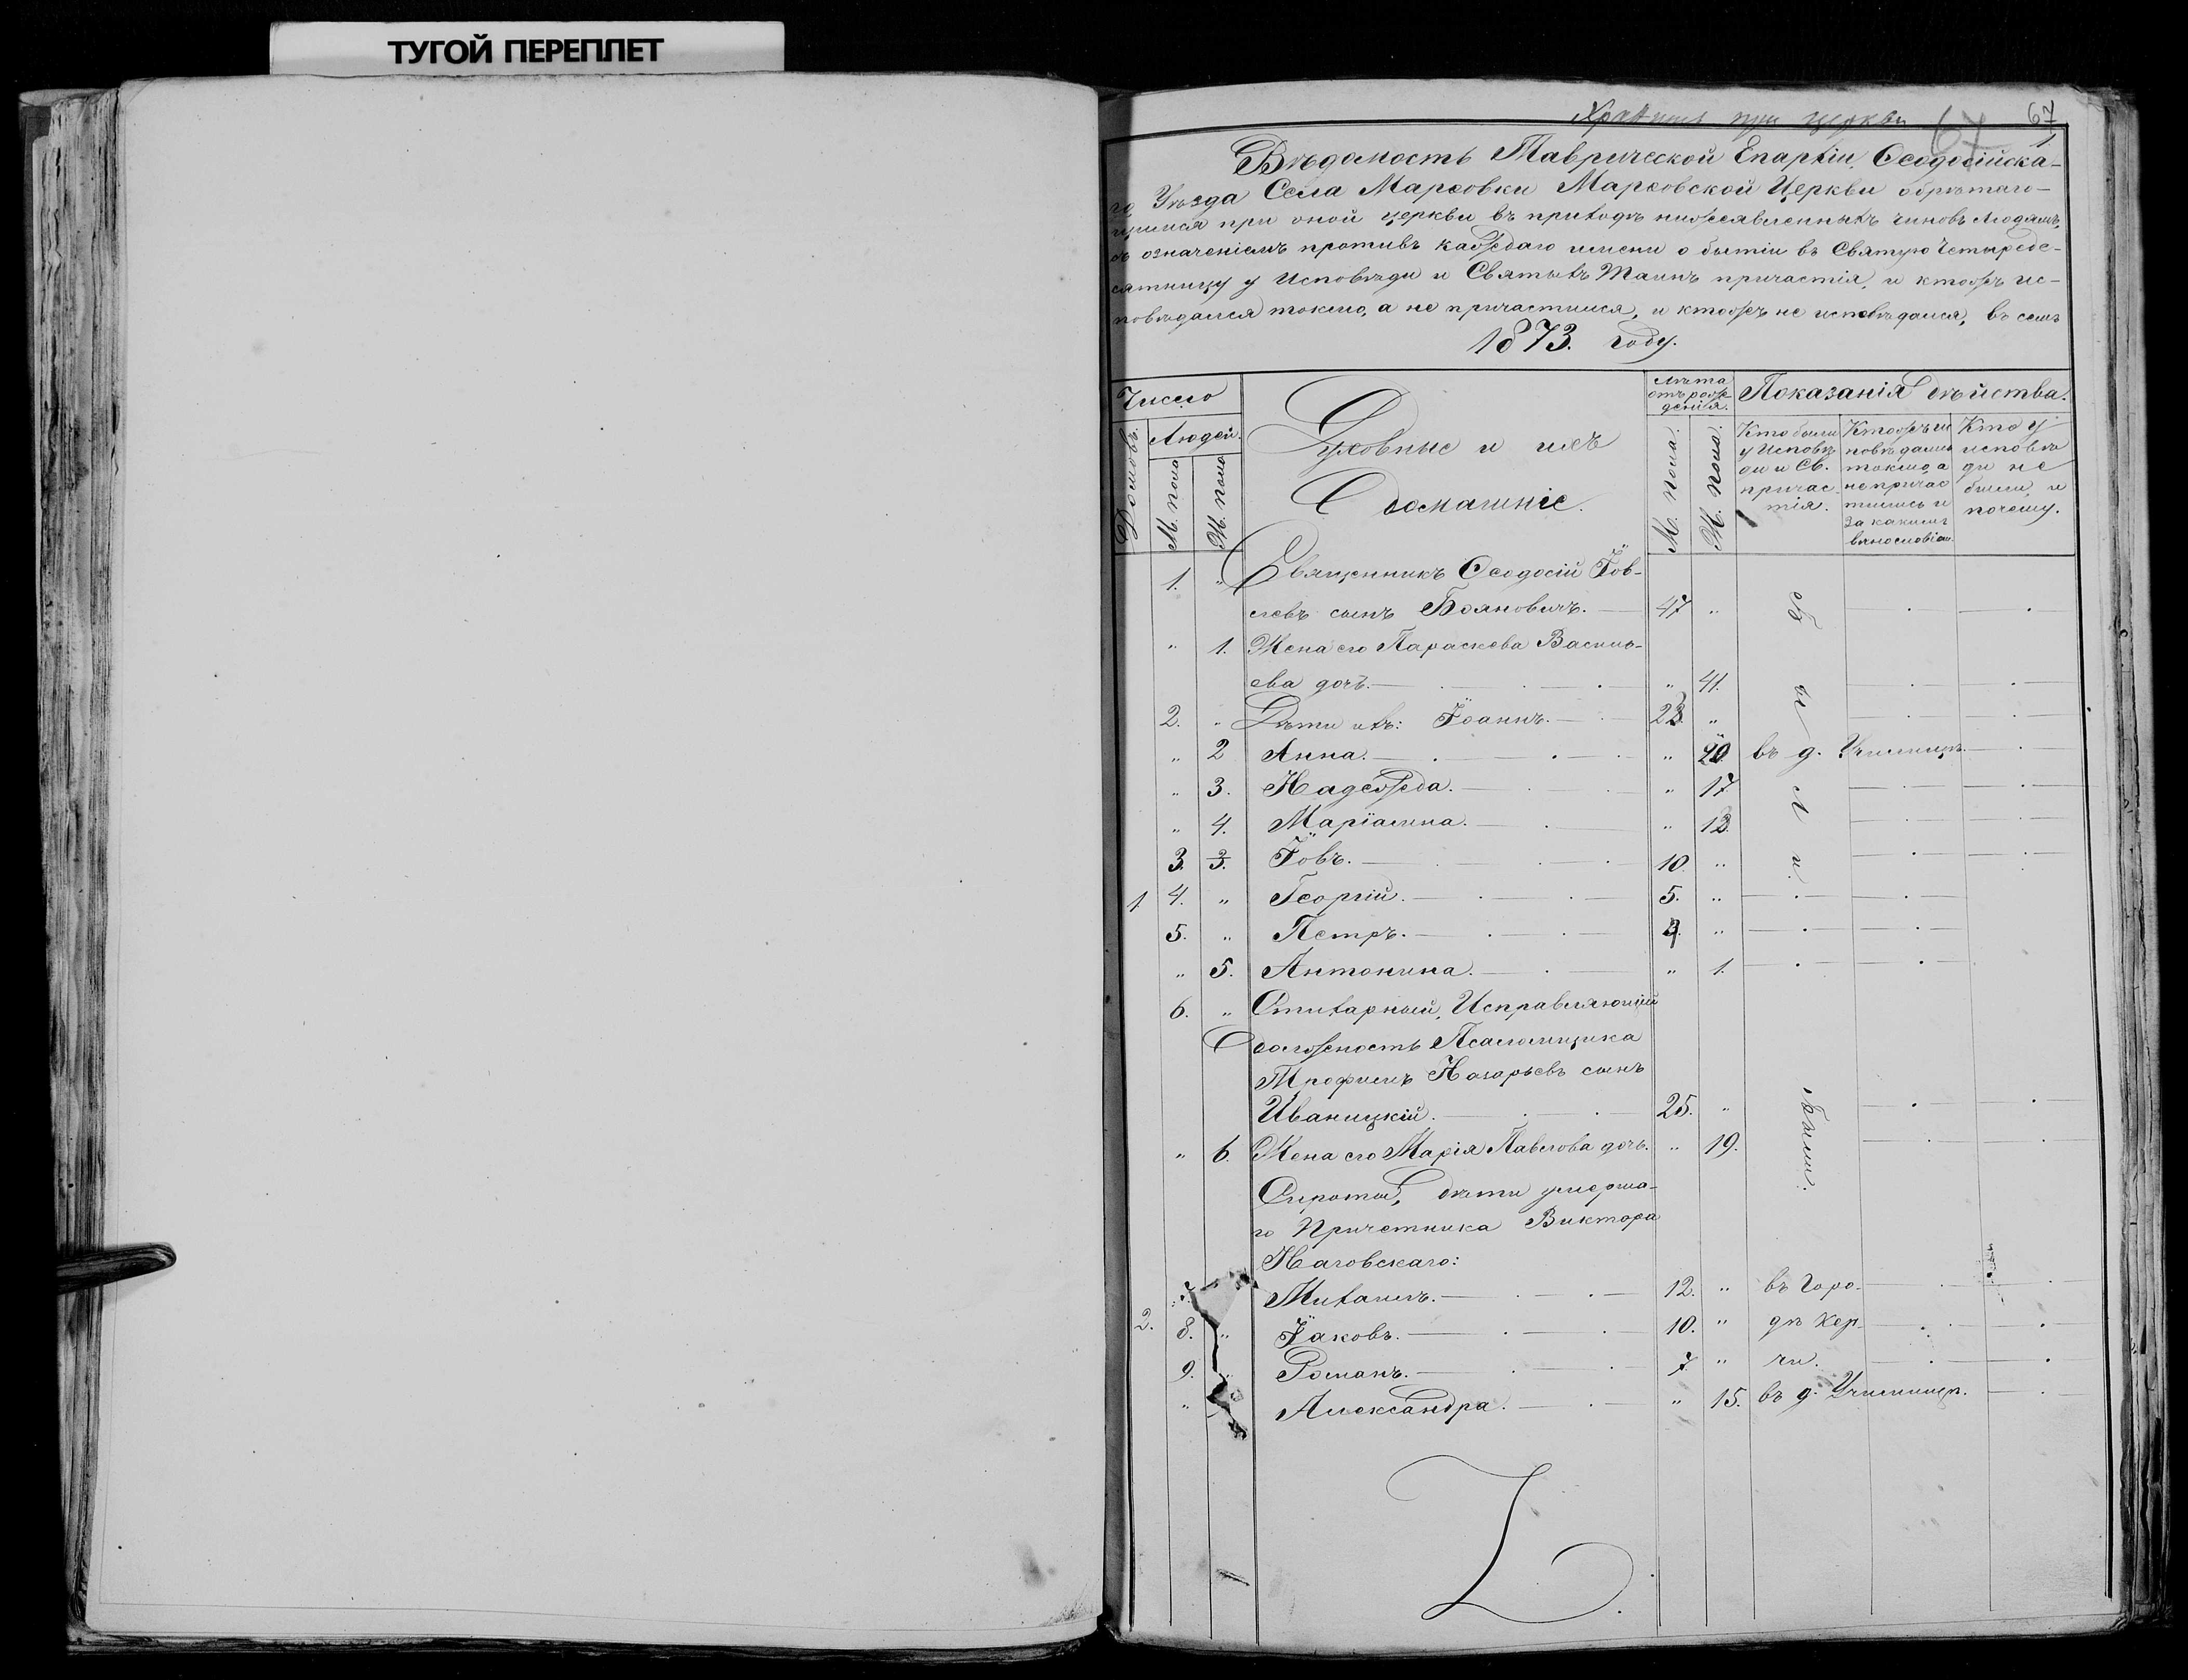 ТУГОЙ ПЕРЕПЛЕТ
при церкви 67 67
Вѣдомость Таврической Епархіи, Ѳеодосійска-
го Уѣзда Села Марѳовки Марѳовской Церкви обрѣтаю-
щимся при оной церкви въ приходѣ нижеявленныхъ чиновъ людямъ,
съ означеніемъ противъ каждаго имени о бытіи въ Святую Четыреде-
сятницу у Исповѣди и Святыхъ Таинъ причастія, и ктожъ ис-
повѣдался токмо, а не причастился, и ктожъ не исповѣдался, въ семъ
1873. году.
Число
Домовъ.
Людей.
М. пола
Ж. пола
Духовные и ихъ
домашніе.
Лѣта
отъ рож-
денія.
М. пола.
Ж. пола.
Показанія дѣйства.
Кто были
у Исповѣ-
ди и Св.
причас-
тія.
Ктожъ ис
повѣдались
токмо, а
не причас
тились и
за какимъ
винословіемъ
Кто у
исповѣ
ди не
были, и
почему.
1. " Священникъ Ѳеодосій Іов-
левъ сынъ Бояновичъ. 47 "
" 1. Жена его Параскева Василь-
ева дочь. " 41.
2. " Дѣти ихъ: Іоаннъ. 23. "
" 2 Анна. " 20. въ д. Училищѣ.
" 3. Надежда. " 17
" 4. Маріамна. " 13.
3. Іовъ. 10. "
1 4. " Георгій. 5. "
5. " Петръ. "
" 5. Антонина. " 1.
Были
6. " Стихарный, Исправляющій
должность Псаломщика
Трофимъ Назарьевъ сынъ
Иваницкій. 25. "
" 6. Жена его Марія Павлова дочь. " 19.
Были.
Сироты, дѣти умерша-
го Причетника Виктора
Наговскаго:
7. Михаилъ. 12. " въ горо-
2. 8. " Іаковъ. 10. " дѣ Кер-
9. Романъ. 7. " чи.
" Александра. " 15. въ д. Училищѣ.